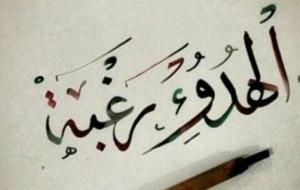 ألهدوُء رغبةْ